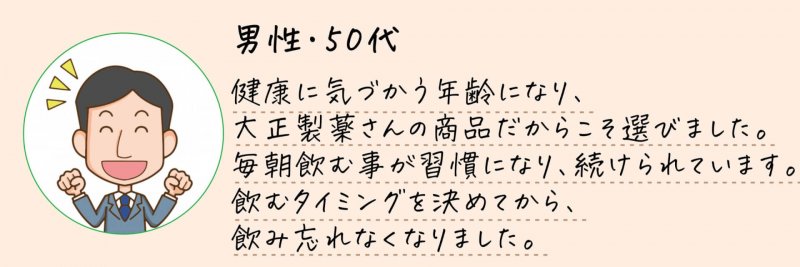 男性・50代
健康に気づかう年齢になり、
大正製薬さんの商品だからこそ選びました。
毎朝飲む事が習慣になり、続けられています。
飲むタイミングを決めてから、
飲み忘れなくなりました。